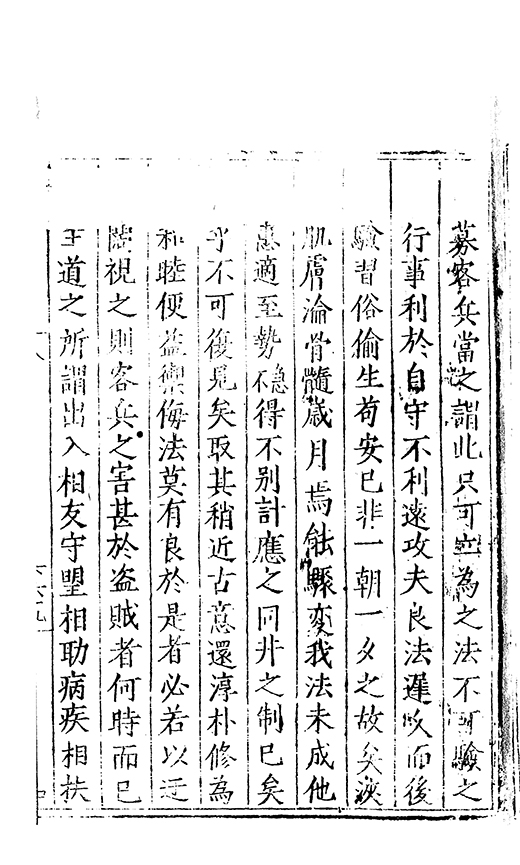 募客兵當之謂此只可空為之法不可驗之
行事利於自守不利遠攻夫良法遲以而後
驗習俗偷生苟安已非一朝一夕之故矣浹
肌膚淪骨髓歲月焉能驟变我法未成他
患適至勢不得不别計應之同井之制已矣
乎不可復見矣取其稍近古意還淳朴修為
和睦便益禦侮法莫有良於是者必若以迂
闊視之則客兵之害甚於盗賊者何時而已
王道之所謂出入相友守望相助病疾相扶